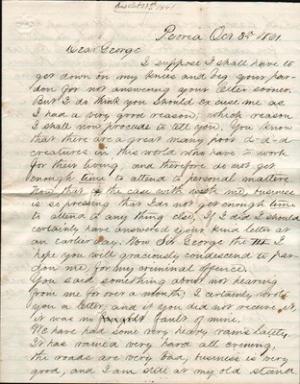 Peoria Oct 3rd 1861
Dear George
I suppose I shall have to
get down on my knees and beg your par-
don for not answering your letter sooner.
But I do think you should excuse me as
I had a very good reason, which reason
I shall now procede to tell you. You know
that there are a great many poor d-d-d
creatures in this world who have to work
for their living, and therefore do not get
enough time to attend to personal matters
Now that is the case with me, business
is so pressing that I do not get enough time
to attend to any thing else, If I did I should
certainly have answered your kind letter at
an earlier day. Now Sir George the I
hope you will graciously condescend to par-
don me, for my criminal offence.
You said something about not hearing
from me for over a month; I certainly wrote
you a letter, and if you did not receive it,
it was no fault of mine.
We have had some very heavy rains lately.
It has rained very hard all evening.
the roads are very bad, business is very
good, and I am still at my old stand